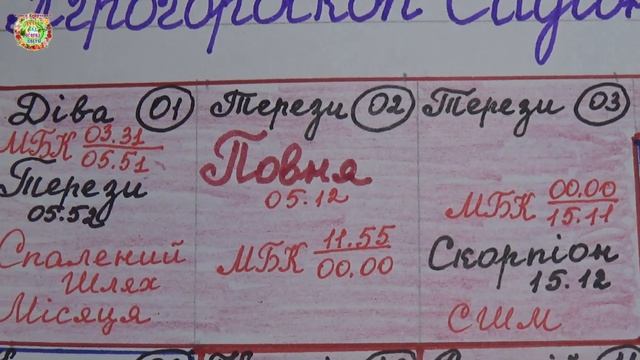 Агрогороскоп
Діва 01
МБК 03.31
05.51
Терези
05.52
Спалений
Шлях
Місяця
Терези 02
Повня
05.12
МБК 11.55
00.00
Терези 03
МБК 00.00
15.11
Скорпіон
15.12
СШМ